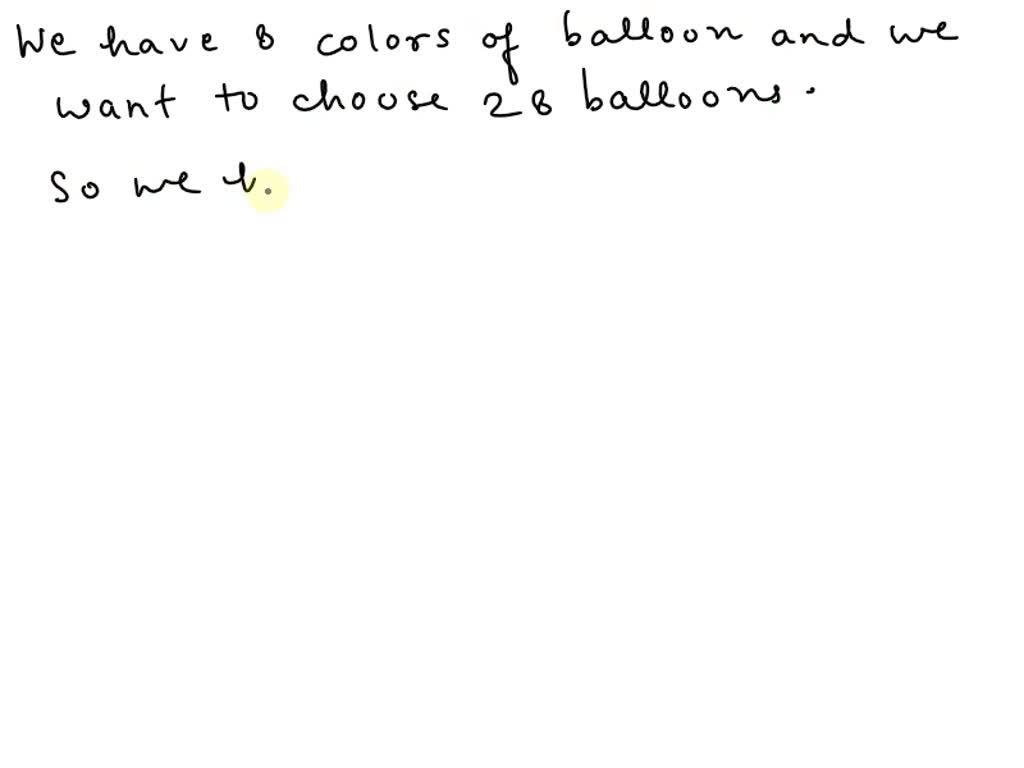 We have 8 colors of balloon and we
want to choose 28 balloons.
So we